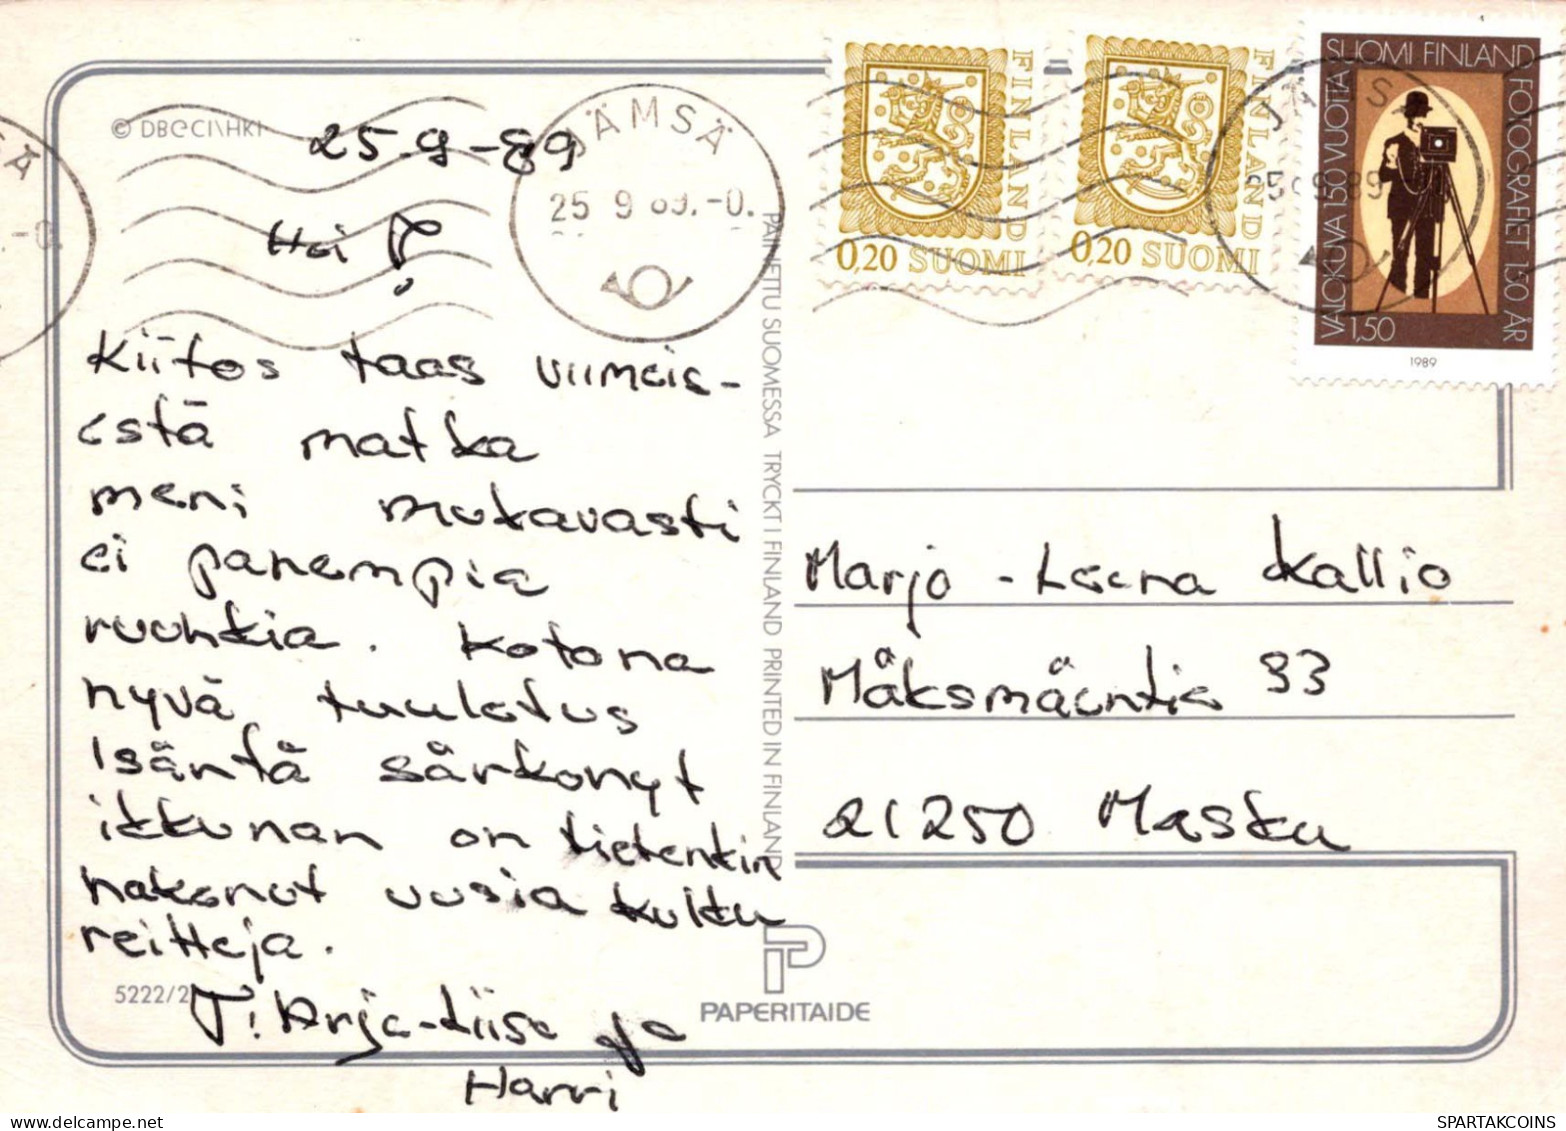 © DBECI\HKI
25.9-89
Hei !
Kiitos taas viimeis-
estä matka
meni mukavasti
ei parempia
ruuhkia. Kotona
hyvä tuuletus
isäntä särkenyt
ikkunan on tietenkin
hakenut uusia kultu
reitteja.
T: Arja-Liisa ja
Harri
5222/2
PAINETTU SUOMESSA TRYCKT I FINLAND PRINTED IN FINLAND
PAPERITAIDE
JÄMSÄ
25 9 89.-0.
FINLAND
0,20 SUOMI
FINLAND
0,20 SUOMI
SUOMI FINLAND
VALOKUVA 150 VUOTTA
FOTOGRAFIET 150 ÅR
1,50
1989
Marjo-Leena Kallio
Mäksmäentie 33
21250 Masku
SPARTAKCOINS